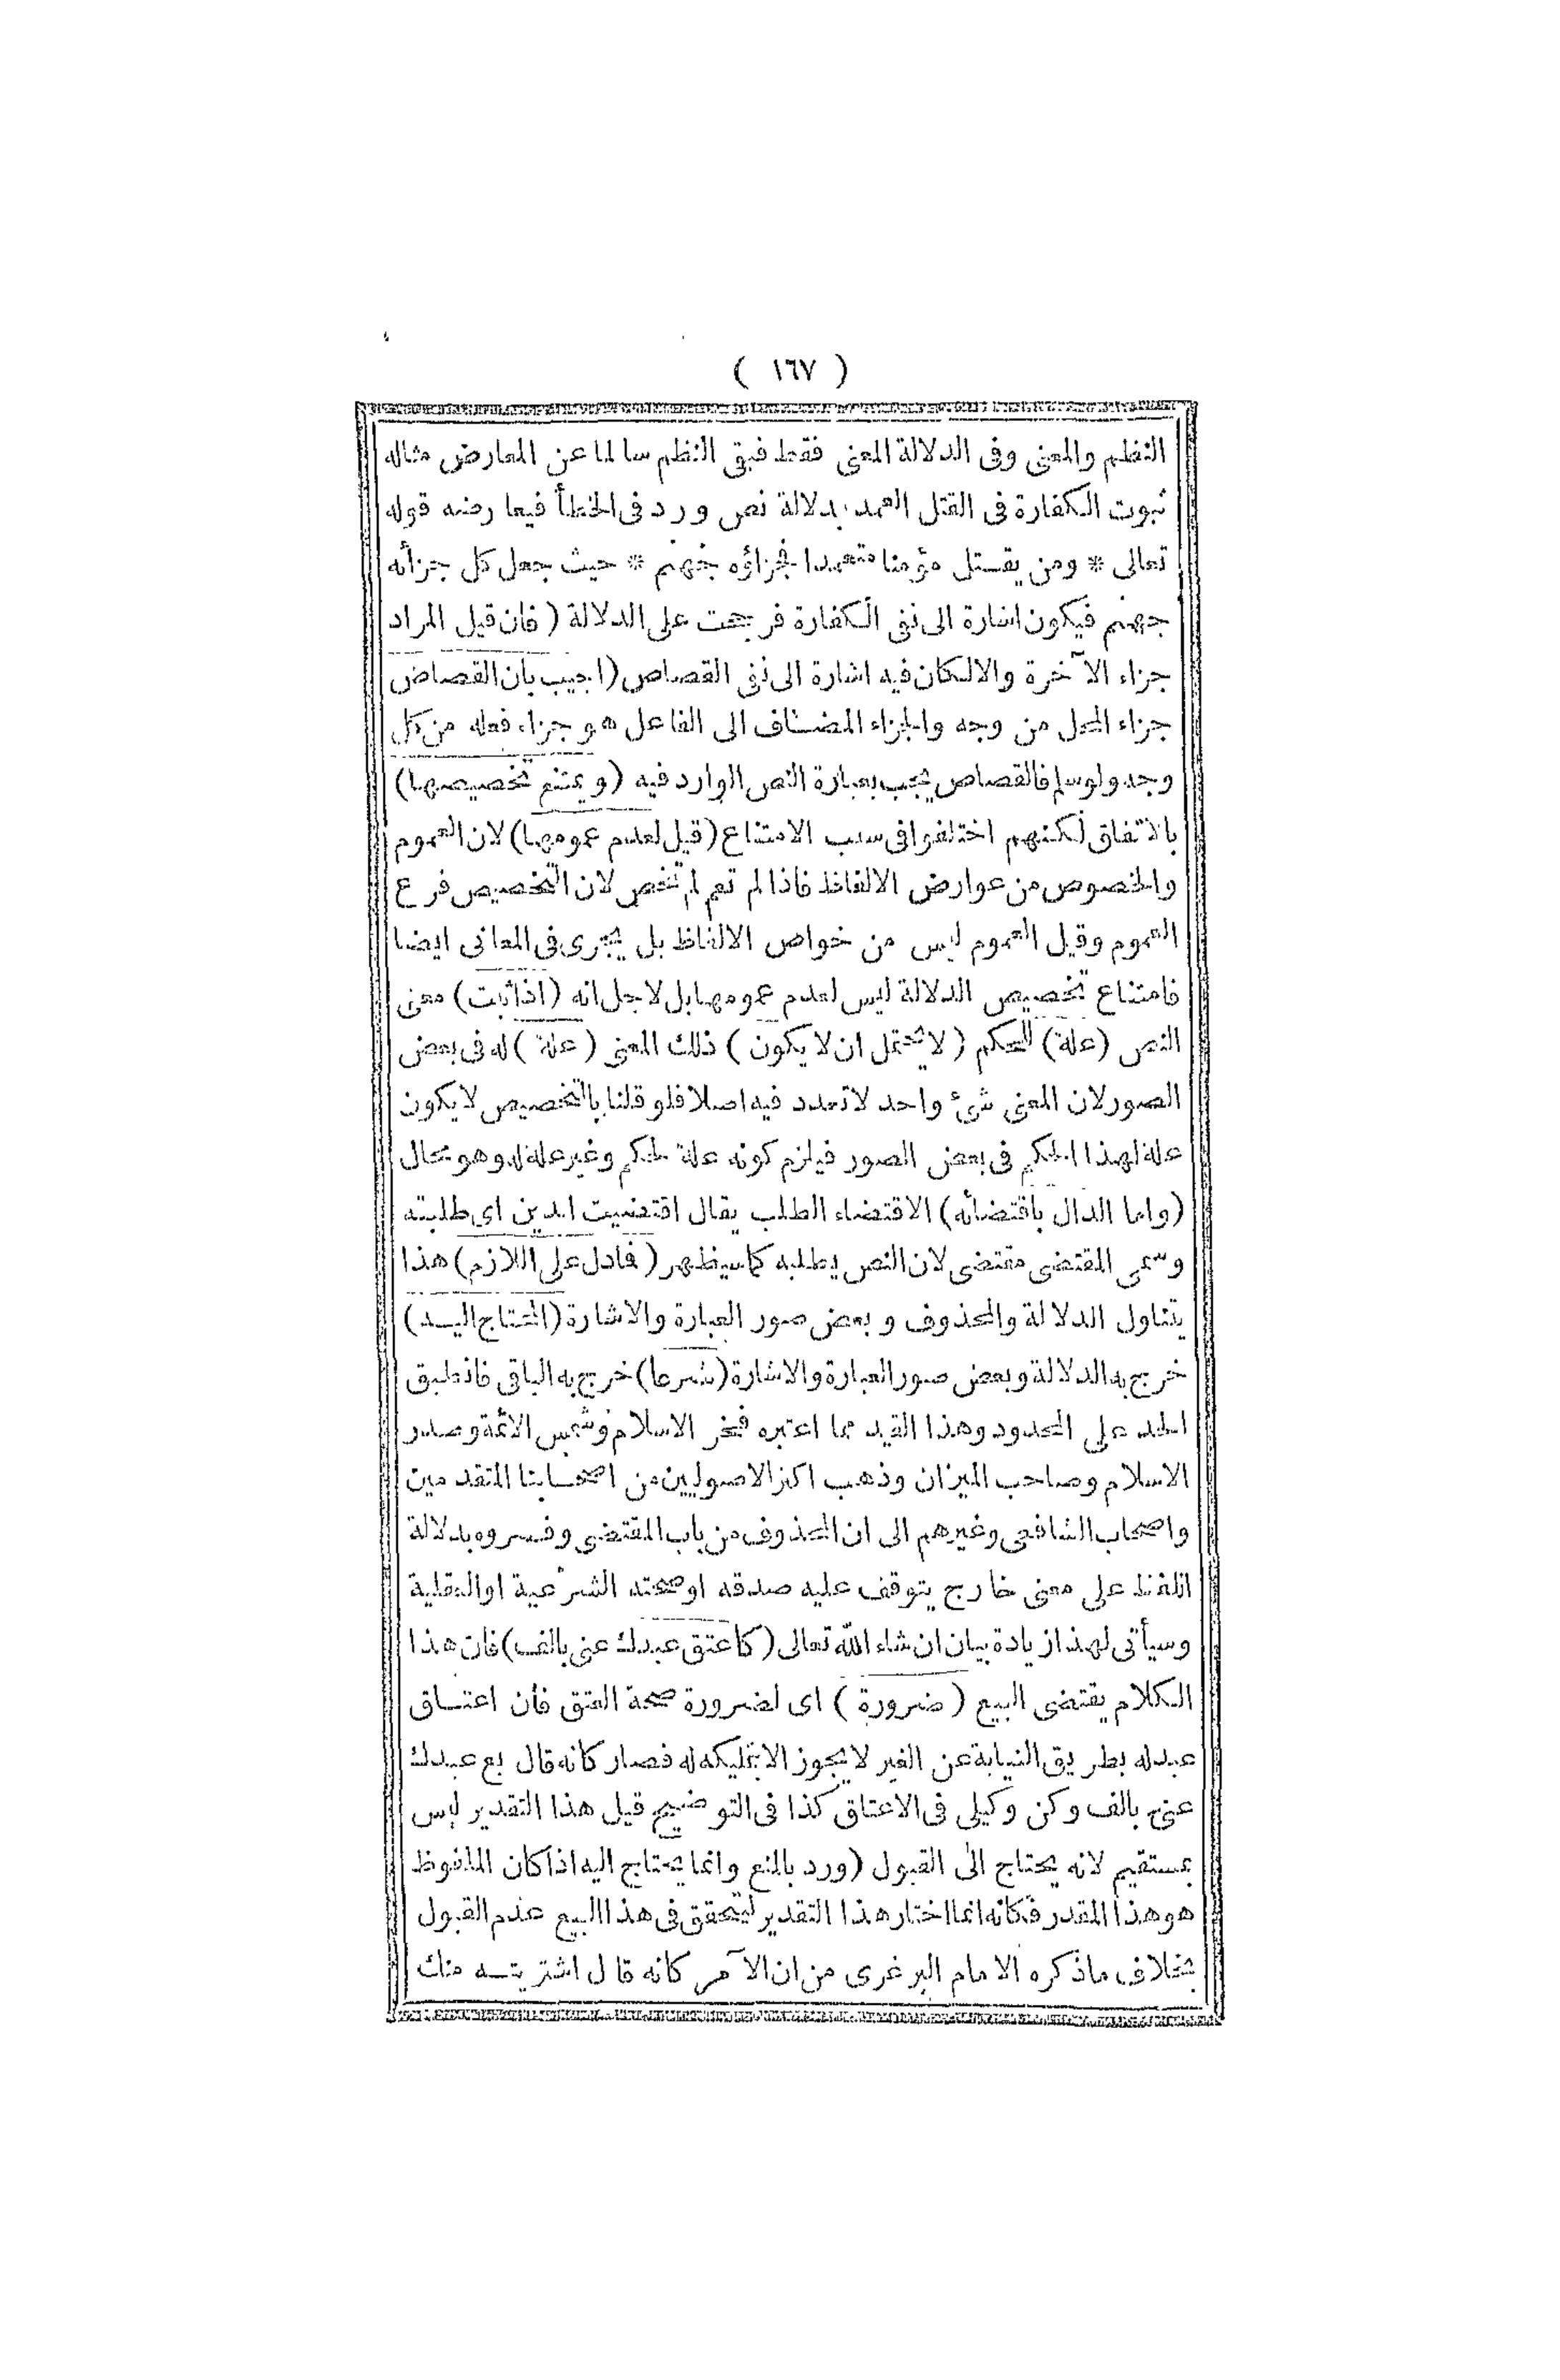 ( ١٦٧ )
النظم والمعنى وفى الدلالة المعنى فقط فبقى النظم سالما عن المعارض مثاله
ثبوت الكفارة فى القتل العمد بدلالة نص ورد فى الخطأ فيعارضه قوله
تعالى * ومن يقتل مؤمنا متعمدا فجزاؤه جهنم * حيث جعل كل جزائه
جهنم فيكون اشارة الى نفى الكفارة فرجحت على الدلالة ( فان قيل المراد
جزاء الآخرة والا لكان فيه اشارة الى نفى القصاص ( اجيب بان القصاص
جزاء المحل من وجه والجزاء المضاف الى الفاعل هو جزاء فعله من كل
وجه ولو سلم فالقصاص يجب بعبارة النص الوارد فيه ( ويمتنع تخصيصها )
بالاتفاق لكنهم اختلفوا فى سبب الامتناع ( قيل لعدم عمومها ) لان العموم
والخصوص من عوارض الالفاظ فاذا لم تعم لم تخص لان التخصيص فرع
العموم وقيل العموم ليس من خواص الالفاظ بل يجرى فى المعانى ايضا
فامتناع تخصيص الدلالة ليس لعدم عمومها بل لاجل انه ( اذا ثبت ) معنى
النص ( علة ) للحكم ( لا يحتمل ان لا يكون ) ذلك المعنى ( علة ) له فى بعض
الصور لان المعنى شئ واحد لا تعدد فيه اصلا فلو قلنا بالتخصيص لا يكون
علة لهذا الحكم فى بعض الصور فيلزم كونه علة لحكم وغير علة له وهو محال
( واما الدال باقتضائه ) الاقتضاء الطلب يقال اقتضيت الدين اى طلبته
وسمى المقتضى مقتضى لان النص يطلبه كما سيظهر ( فما دل على اللازم ) هذا
يتناول الدلالة والمحذوف وبعض صور العبارة والاشارة ( المحتاج اليه )
خرج به الدلالة وبعض صور العبارة والاشارة ( شرعا ) خرج به الباقى فانطبق
الحد على المحدود وهذا القيد مما اعتبره فخر الاسلام وشمس الائمة وصدر
الاسلام وصاحب الميزان وذهب اكثر الاصوليين من اصحابنا المتقدمين
واصحاب الشافعى وغيرهم الى ان المحذوف من باب المقتضى وفسروه بدلالة
اللفظ على معنى خارج يتوقف عليه صدقه او صحته الشرعية او العقلية
وسيأتى لهذا زيادة بيان ان شاء الله تعالى ( كاعتق عبدك عنى بالف ) فان هذا
الكلام يقتضى البيع ( ضرورة ) اى لضرورة صحة العتق فان اعتاق
عبد له بطريق النيابة عن الغير لا يجوز الا بتمليكه له فصار كانه قال بع عبدك
عنى بالف وكن وكيلى فى الاعتاق كذا فى التوضيح قيل هذا التقدير ليس
بمستقيم لانه يحتاج الى القبول ( ورد بالمنع وانما يحتاج اليه اذا كان الملفوظ
هو هذا المقدر فكانه انما اختار هذا التقدير ليتحقق فى هذا البيع عدم القبول
بخلاف ما ذكره الامام البرغرى من ان الآمر كانه قال اشتريته منك